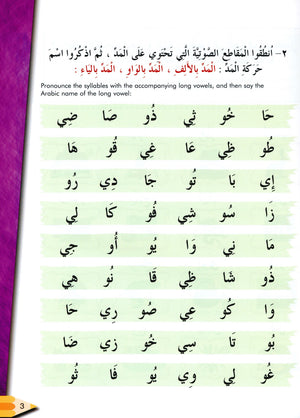 ٢- اُنْطُقُوا الْمَقَاطِعَ الصَّوْتِيَّةَ الَّتِي تَحْتَوِي عَلَى الْمَدِّ ، ثُمَّ اذْكُرُوا اسْمَ
حَرَكَةِ الْمَدِّ : الْمَدّ بِالأَلِفِ ، الْمَدّ بِالوَاوِ ، الْمَدّ بِاليَاءِ :
Pronounce the syllables with the accompanying long vowels, and then say the
Arabic name of the long vowel:
حَا خُو ثِي ذُو صَا ضِي
طُو ظِي عَا غِي قُو هَا
إِي بَا تُو جَا دِي رُو
زَا سُو شِي فُو كَا لِي
مَا نِي وَا يُو أُو حِي
ذُو شَا ظِي قَا نُو هِي
وَا كُو عِي صُو رِي حَا
بُو تَا سِي خُو زِي ضَا
غُو لِي وِي يُو فَا ثُو
3